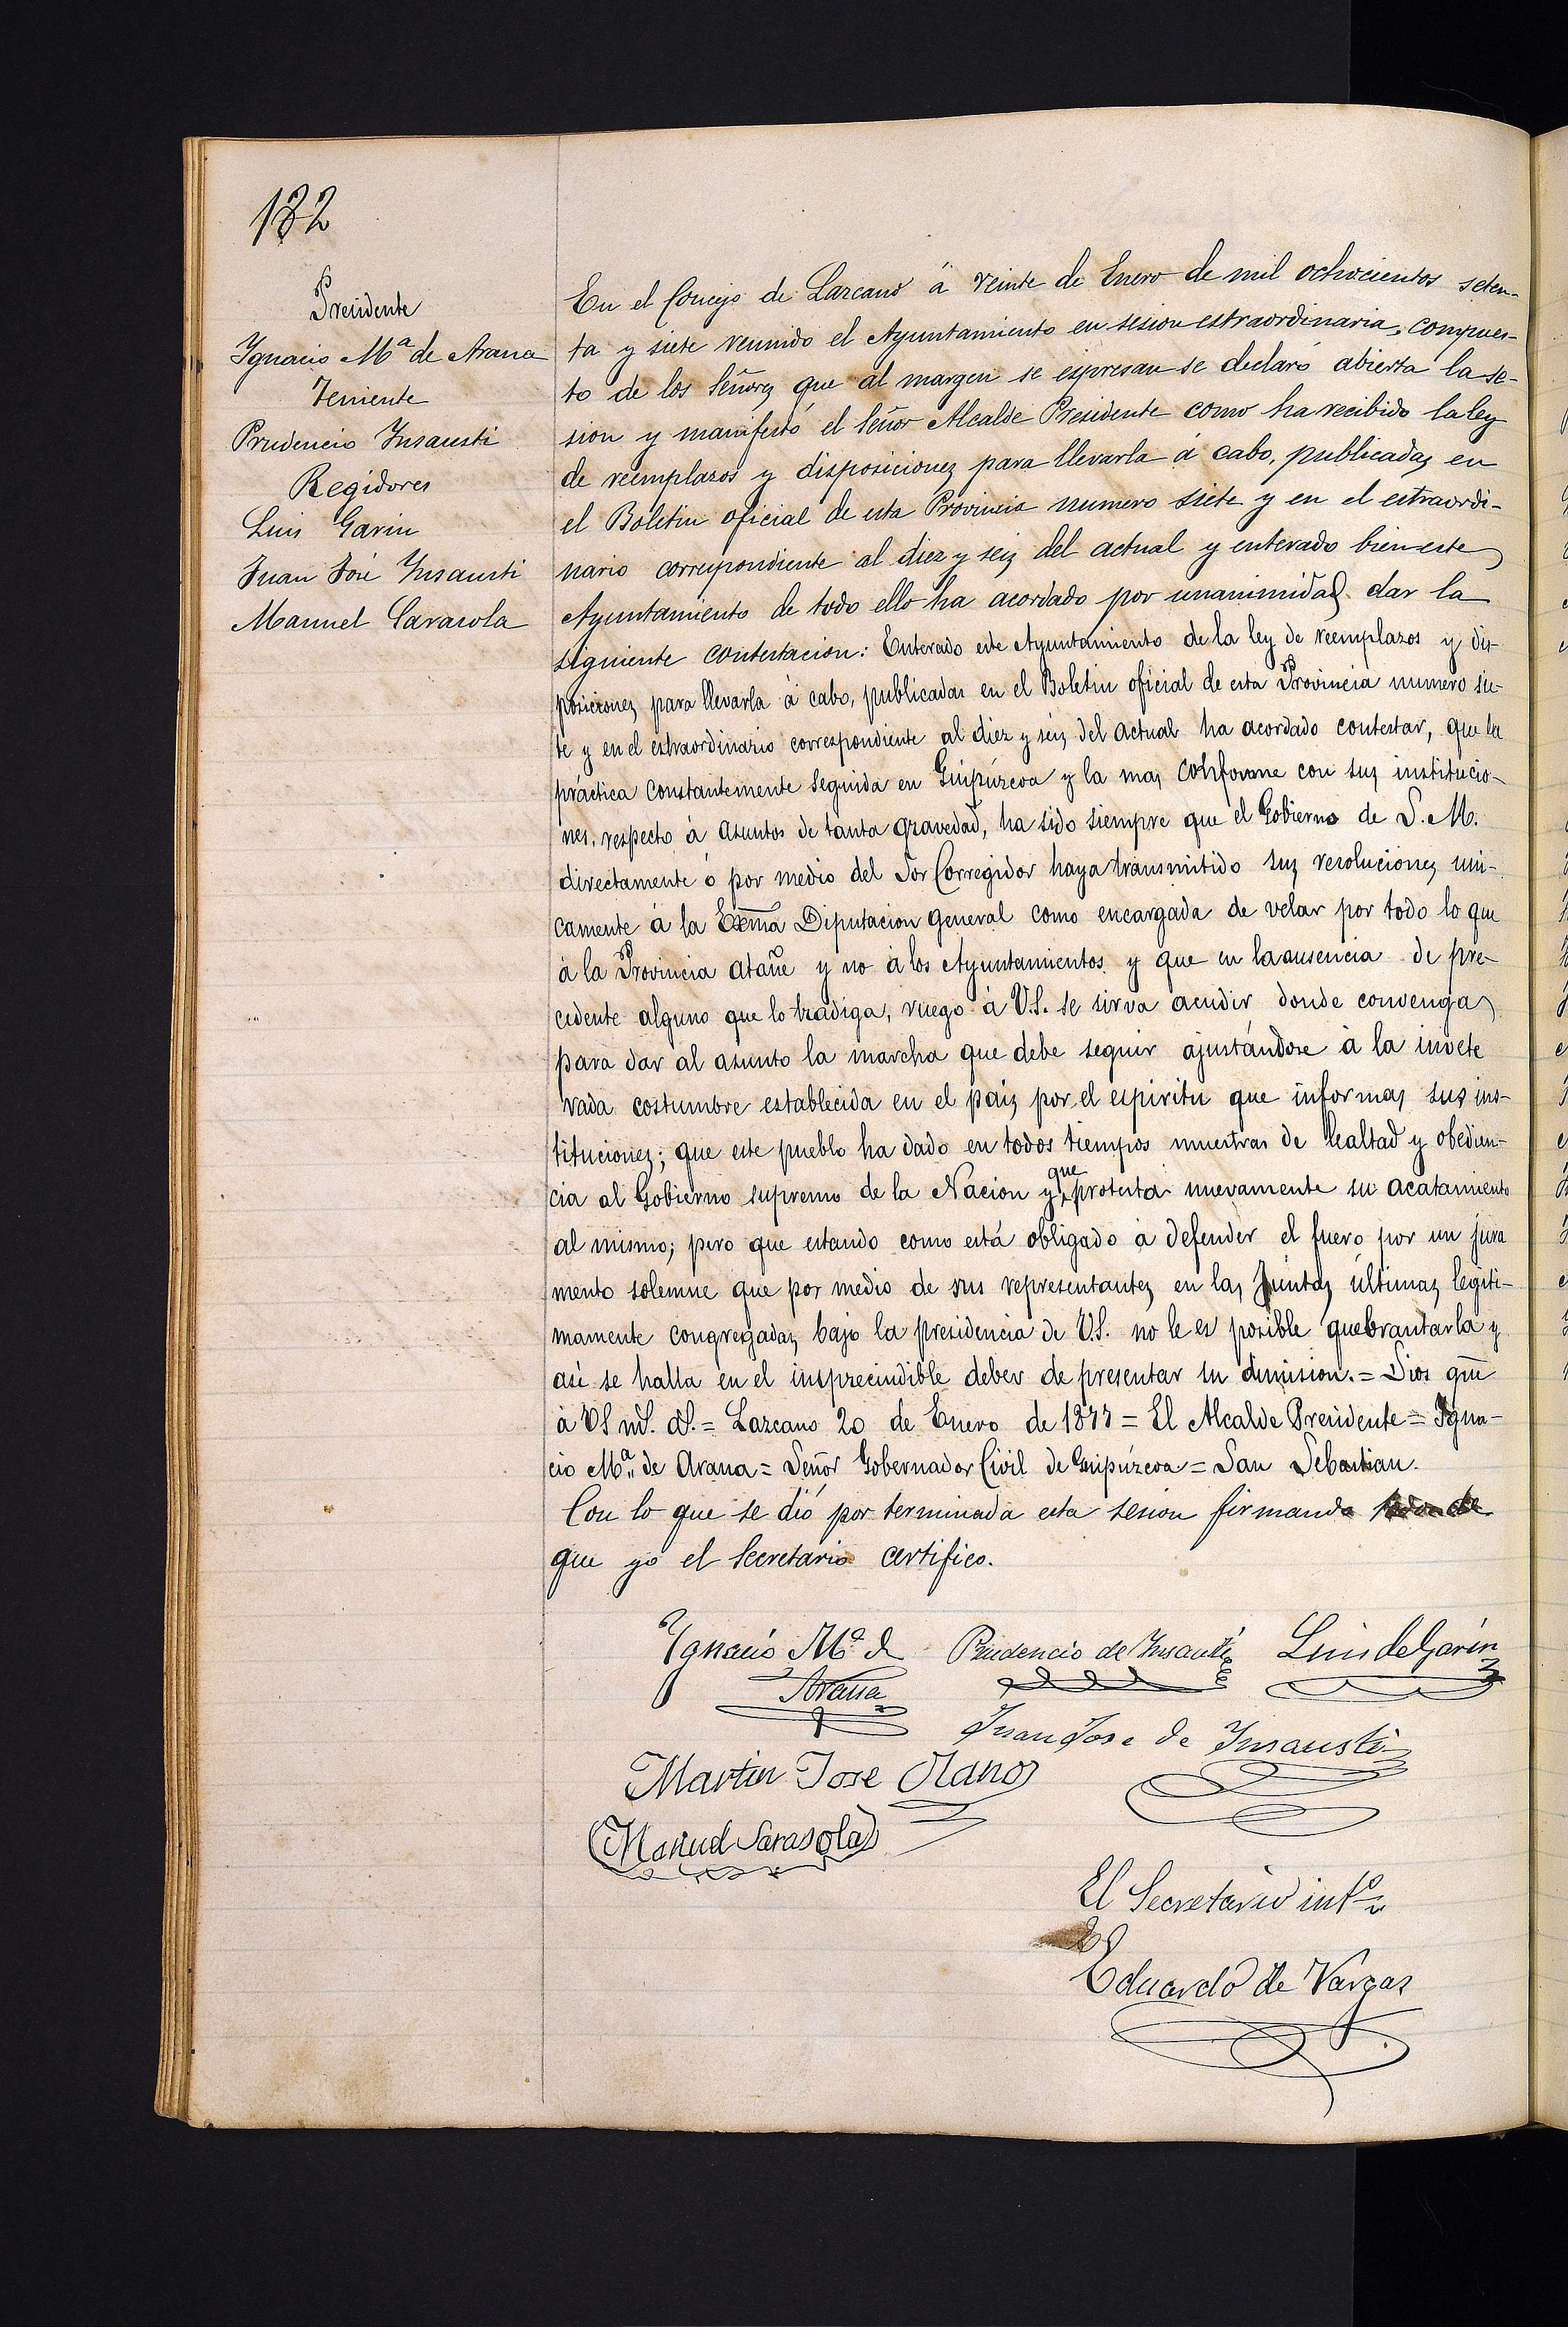 182
Presidente
Ignacio Mª de Arana
Teniente
Prudencio Insausti
Regidores
Luis Garin
Juan José Insausti
Manuel Sarasola
En el Concejo de Lazcano á veinte de Enero de mil ochocientos seten-
ta y siete reunido el Ayuntamiento en sesion estraordinaria, compues-
to de los Señores que al margen se espresan se declaró abierta la se-
sion y manifestó el Señor Alcalde Presidente como ha recibido la ley
de reemplazos y disposiciones para llevarla á cabo, publicadas en
el Boletin oficial de esta Provincia numero siete y en el estraordi-
nario correspondiente al diez y seis del actual y enterado bien este
Ayuntamiento de todo ello ha acordado por unanimidad dar la
siguiente contestacion: Enterado este Ayuntamiento de la ley de reemplazos y dis-
posiciones para llevarla á cabo, publicadas en el Boletin oficial de esta Provincia numero sie-
te y en el estraordinario correspondiente al diez y seis del actual ha acordado contestar, que la
práctica constantemente seguida en Guipúzcoa y la mas conforme con sus institucio-
nes, respecto á asuntos de tanta gravedad, ha sido siempre que el Gobierno de S. M.
directamente ó por medio del Sor Corregidor haya transmitido sus resoluciones uni-
camente á la Exma Diputacion general como encargada de velar por todo lo que
á la Provincia atañe y no á los Ayuntamientos y que en la ausencia de pre-
cedente alguno que lo tradiga, ruego á V.S. se sirva acudir donde convenga
para dar al asunto la marcha que debe seguir ajustándose á la invete
rada costumbre establecida en el pais por el espiritu que informas sus ins-
tituciones; que este pueblo ha dado en todos tiempos muestras de lealtad y obedien-
cia al Gobierno supremo de la Nacion y que protesta nuevamente su acatamiento
al mismo; pero que estando como está obligado á defender el fuero por un jura
mento solemne que por medio de sus representantes en las Juntas últimas legiti-
mamente congregadas bajo la presidencia de V.S. no le es posible quebrantarla y
asi se halla en el inspreccindible deber de presentar su dimision. = Dios gue
á VS ms. as. = Lazcano 20 de Enero de 1877 = El Alcalde Presidente = Igna-
cio Mª de Arana = Señor Gobernador Civil de Guipúzcoa = San Sebastian.
Con lo que se dió por terminada esta sesion firmando de
que yo el Secretario certifico.
Ignacio Mª de Prudencio de Insausti Luis de Garin
Arana
Juan Jose de Insausti
Martin Jose Olano
Manuel Sarasola
El Secretario intº
Eduardo de Vargas